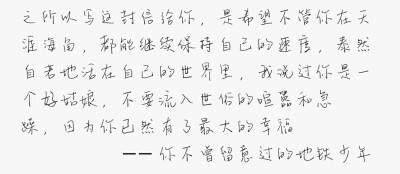 之所以写这封信给你，是希望不管你在天
涯海角，都能继续保持自己的速度，泰然
自若地活在自己的世界里，我说过你是一
个好姑娘，不要流入世俗的喧嚣和急
躁，因为你已然有了最大的幸福
——你不曾留意过的地铁少年